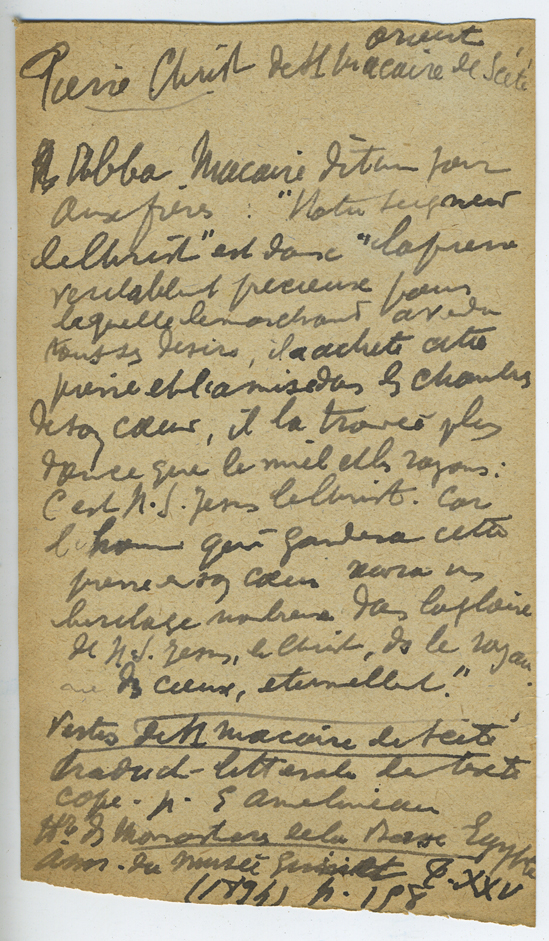 orient
Pierre Christ de St Macaire de Scété
Abba Macaire dit un jour
aux frères : "Notre Seigneur
le Christ" est donc "la pierre
véritablet précieuse pour
laquelle le marchand a vendu
tous ses désirs, il a acheté cette
pierre et l'a mise dans les chambres
de son cœur, il la trouvée plus
douce que le miel et les rayons :
C'est N. S. Jesus le Christ. Car
l'homme qui gardera cette
pierre en son cœur aura un
héritage nombreux dans la gloire
de N. S. Jesus, le Christ, ds le royau
me des cieux, éternellet."
Vertus de St Macaire de Scété
traduct- littérale du texte
copte. p. E Amelineau
Hre des Monastères de la Basse Egypte
Ann. du Musée Guimet T. XXV
(1894) p. 158